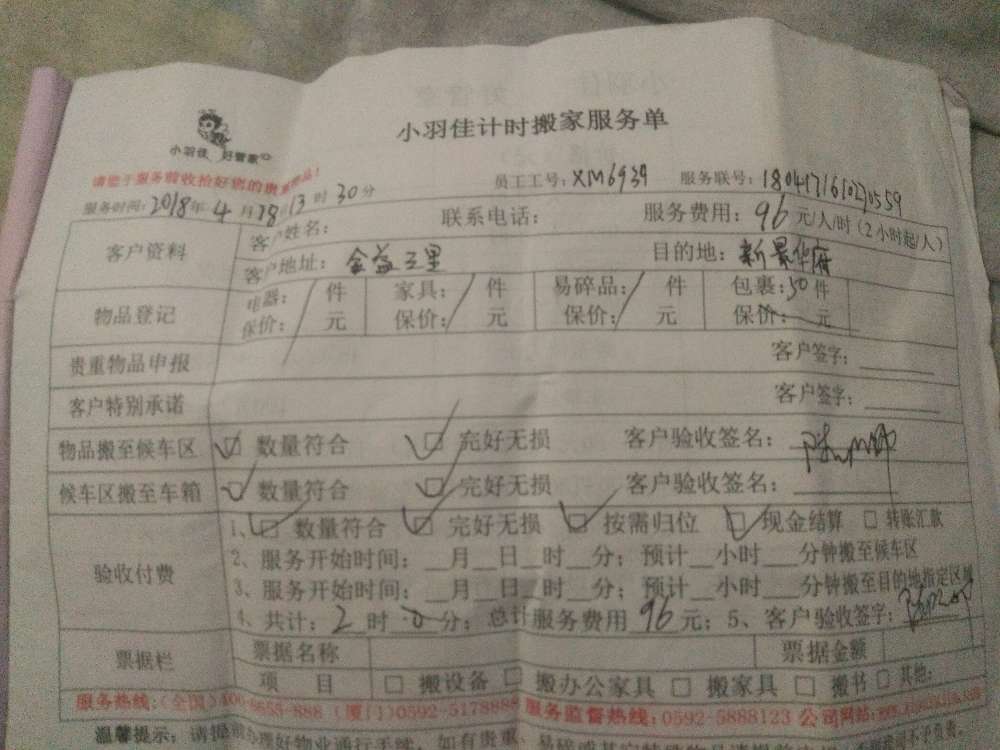 小羽佳计时搬家服务单
小羽佳 好管家
请您于服务前收拾好您的贵重物品!
员工工号: XM6939 服务联号:
服务时间: 2018年4月18日13时30分
联系电话: 服务费用: 96元/人/时(2小时起/人)
客户资料 客户姓名:
客户地址: 金益三里 目的地: 新景华府
物品登记 电器: 件 家具: 件 易碎品: 件 包裹: 50件
保价: 元 保价: 元 保价: 元 保价: 元
贵重物品申报 客户签字:
客户特别承诺 客户签字:
物品搬至候车区 ☑ 数量符合 ☑ 完好无损 客户验收签名:
候车区搬至车箱 ☑ 数量符合 ☑ 完好无损 客户验收签名:
验收付费 1、☑ 数量符合 ☑ 完好无损 ☑ 按需归位 ☑ 现金结算 □ 转账汇款
2、服务开始时间: __月__日__时__分; 预计__小时__分钟搬至候车区
3、服务开始时间: __月__日__时__分; 预计__小时__分钟搬至目的地指定区域
4、共计: 2时0分; 总计服务费用 96元; 5、客户验收签字:
票据栏 票据名称 票据金额
项 目 □ 搬设备 □ 搬办公家具 □ 搬家具 □ 搬书 □ 其他:
服务热线:(全国)400-6655-888 (厦门)0592-5178888 服务监督热线:0592-5888123 公司网站:
温馨提示: